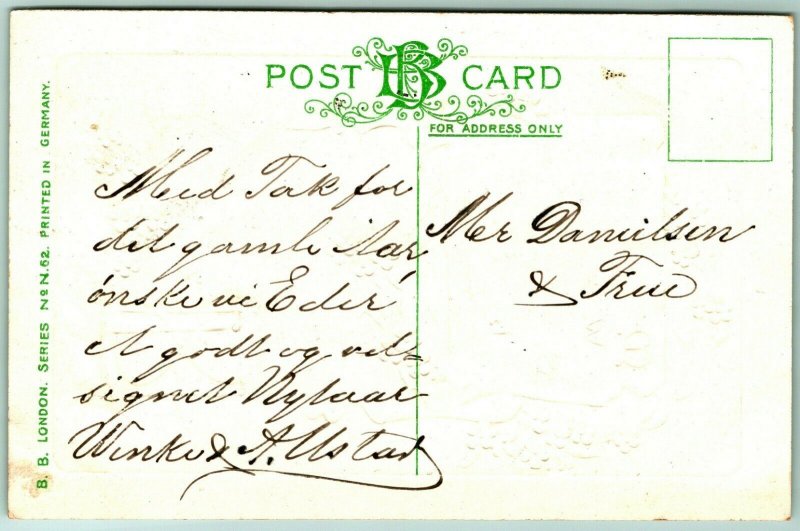 POST CARD
FOR ADDRESS ONLY
B. B. LONDON. SERIES No N.62. PRINTED IN GERMANY.
Med Tak for
det gamle Aar,
ønske vi Eder
et godt og vel=
signet Nytaar
& A. Ustad
Mr Danielsen
& Frue